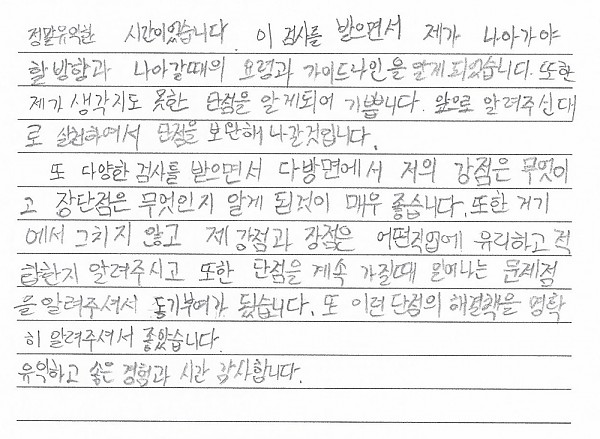 정말유익한 시간이었습니다. 이 검사를 받으면서 제가 나아가야
할방향과 나아갈때의 요령과 가이드라인을 알게되었습니다. 또한
제가 생각지도 못한 단점을 알게되어 기쁩니다. 앞으로 알려주신대
로 실천하여서 단점을 보완해 나갈것입니다.
또 다양한 검사를 받으면서 다방면에서 저의 강점은 무엇이
고 장단점은 무엇인지 알게 된것이 매우 좋습니다. 또한 거기
에서 그치지 않고 제 강점과 장점은 어떤직업에 유리하고 적
합한지 알려주시고 또한 단점을 계속 가질때 일어나는 문제점
을 알려주셔서 동기부여가 됬습니다. 또 이런 단점의 해결책을 명확
히 알려주셔서 좋았습니다.
유익하고 좋은 경험과 시간 감사합니다.